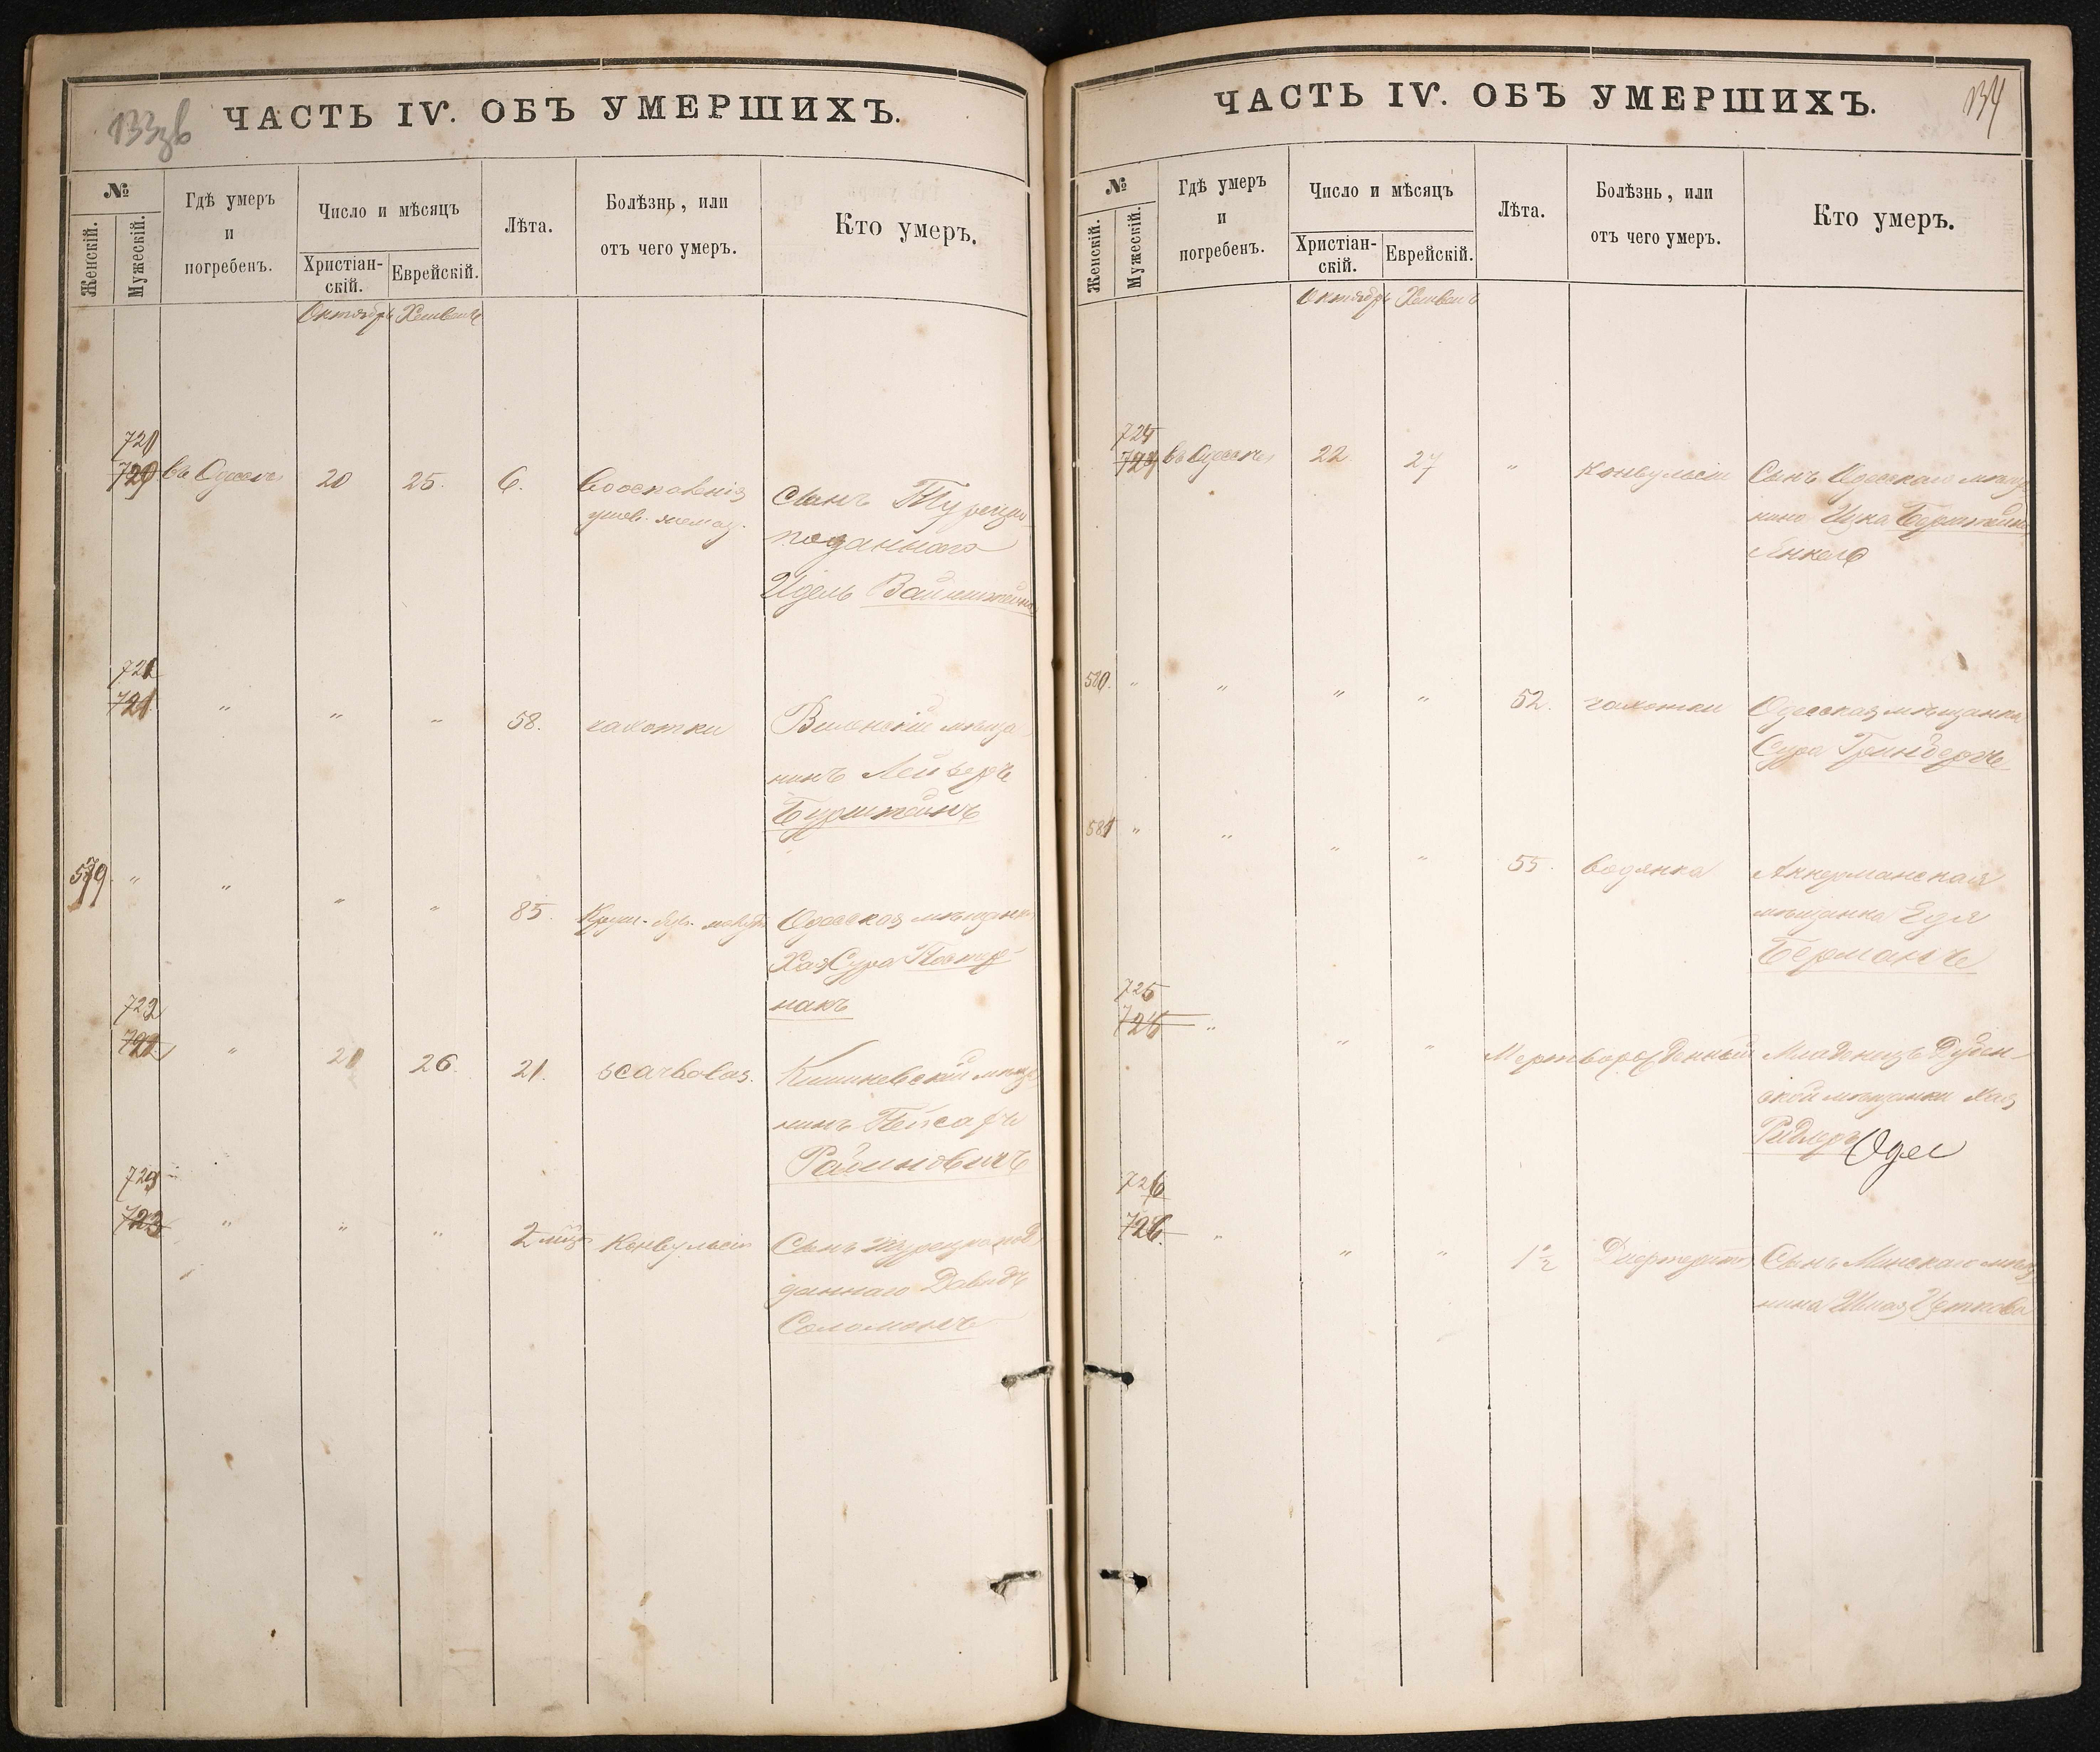 133зв
ЧАСТЬ IV. ОБЪ УМЕРШИХЪ.
№
Женскій.
Мужескій.
Гдѣ умеръ
и
погребенъ.
Число и мѣсяцъ
Христіан-
скій.
Еврейскій.
Лѣта.
Болѣзнь, или
отъ чего умеръ.
Кто умеръ.
Октябрь Хешвенъ
720
въ Одессѣ 20 25. 6.
Сынъ
поданнаго
Идель Вайнштейнъ
721
721 " " " 58. чахотки Виленскій мѣща-
нинъ Лейзеръ
Бурштейнъ
579 " " " " 85. Одесская мѣщанка
Хая Сура Постер-
накъ
722
" 21 26. 21. Кишиневскій мѣща
нинъ
Рабиновичъ
723
723 " " " 2 мѣс. Конвульсіи Сынъ Турецко под
даннаго Давидъ
Соломонъ
134
ЧАСТЬ IV. ОБЪ УМЕРШИХЪ.
№
Женскій.
Мужескій.
Гдѣ умеръ
и
погребенъ.
Число и мѣсяцъ
Христіан-
скій.
Еврейскій.
Лѣта.
Болѣзнь, или
отъ чего умеръ.
Кто умеръ.
Октябрь Хешвенъ
724
въ Одессѣ 22 27 " Конвульсіи Сынъ Одесскаго мѣща
нина Бурштейна
Янкель
580. " " " " 52. чахотки Одесская мѣщанка
Сура Гринбергъ
581 " " " " 55. водянка Аккерманская
мѣщанка Едя
Берманъ
725
" " " Мертворожденный Младенецъ Дубен-
ской мѣщанки Хая
Одес
726
726. " " " 1½ Дифтеритъ Сынъ Минскаго мѣща
нина